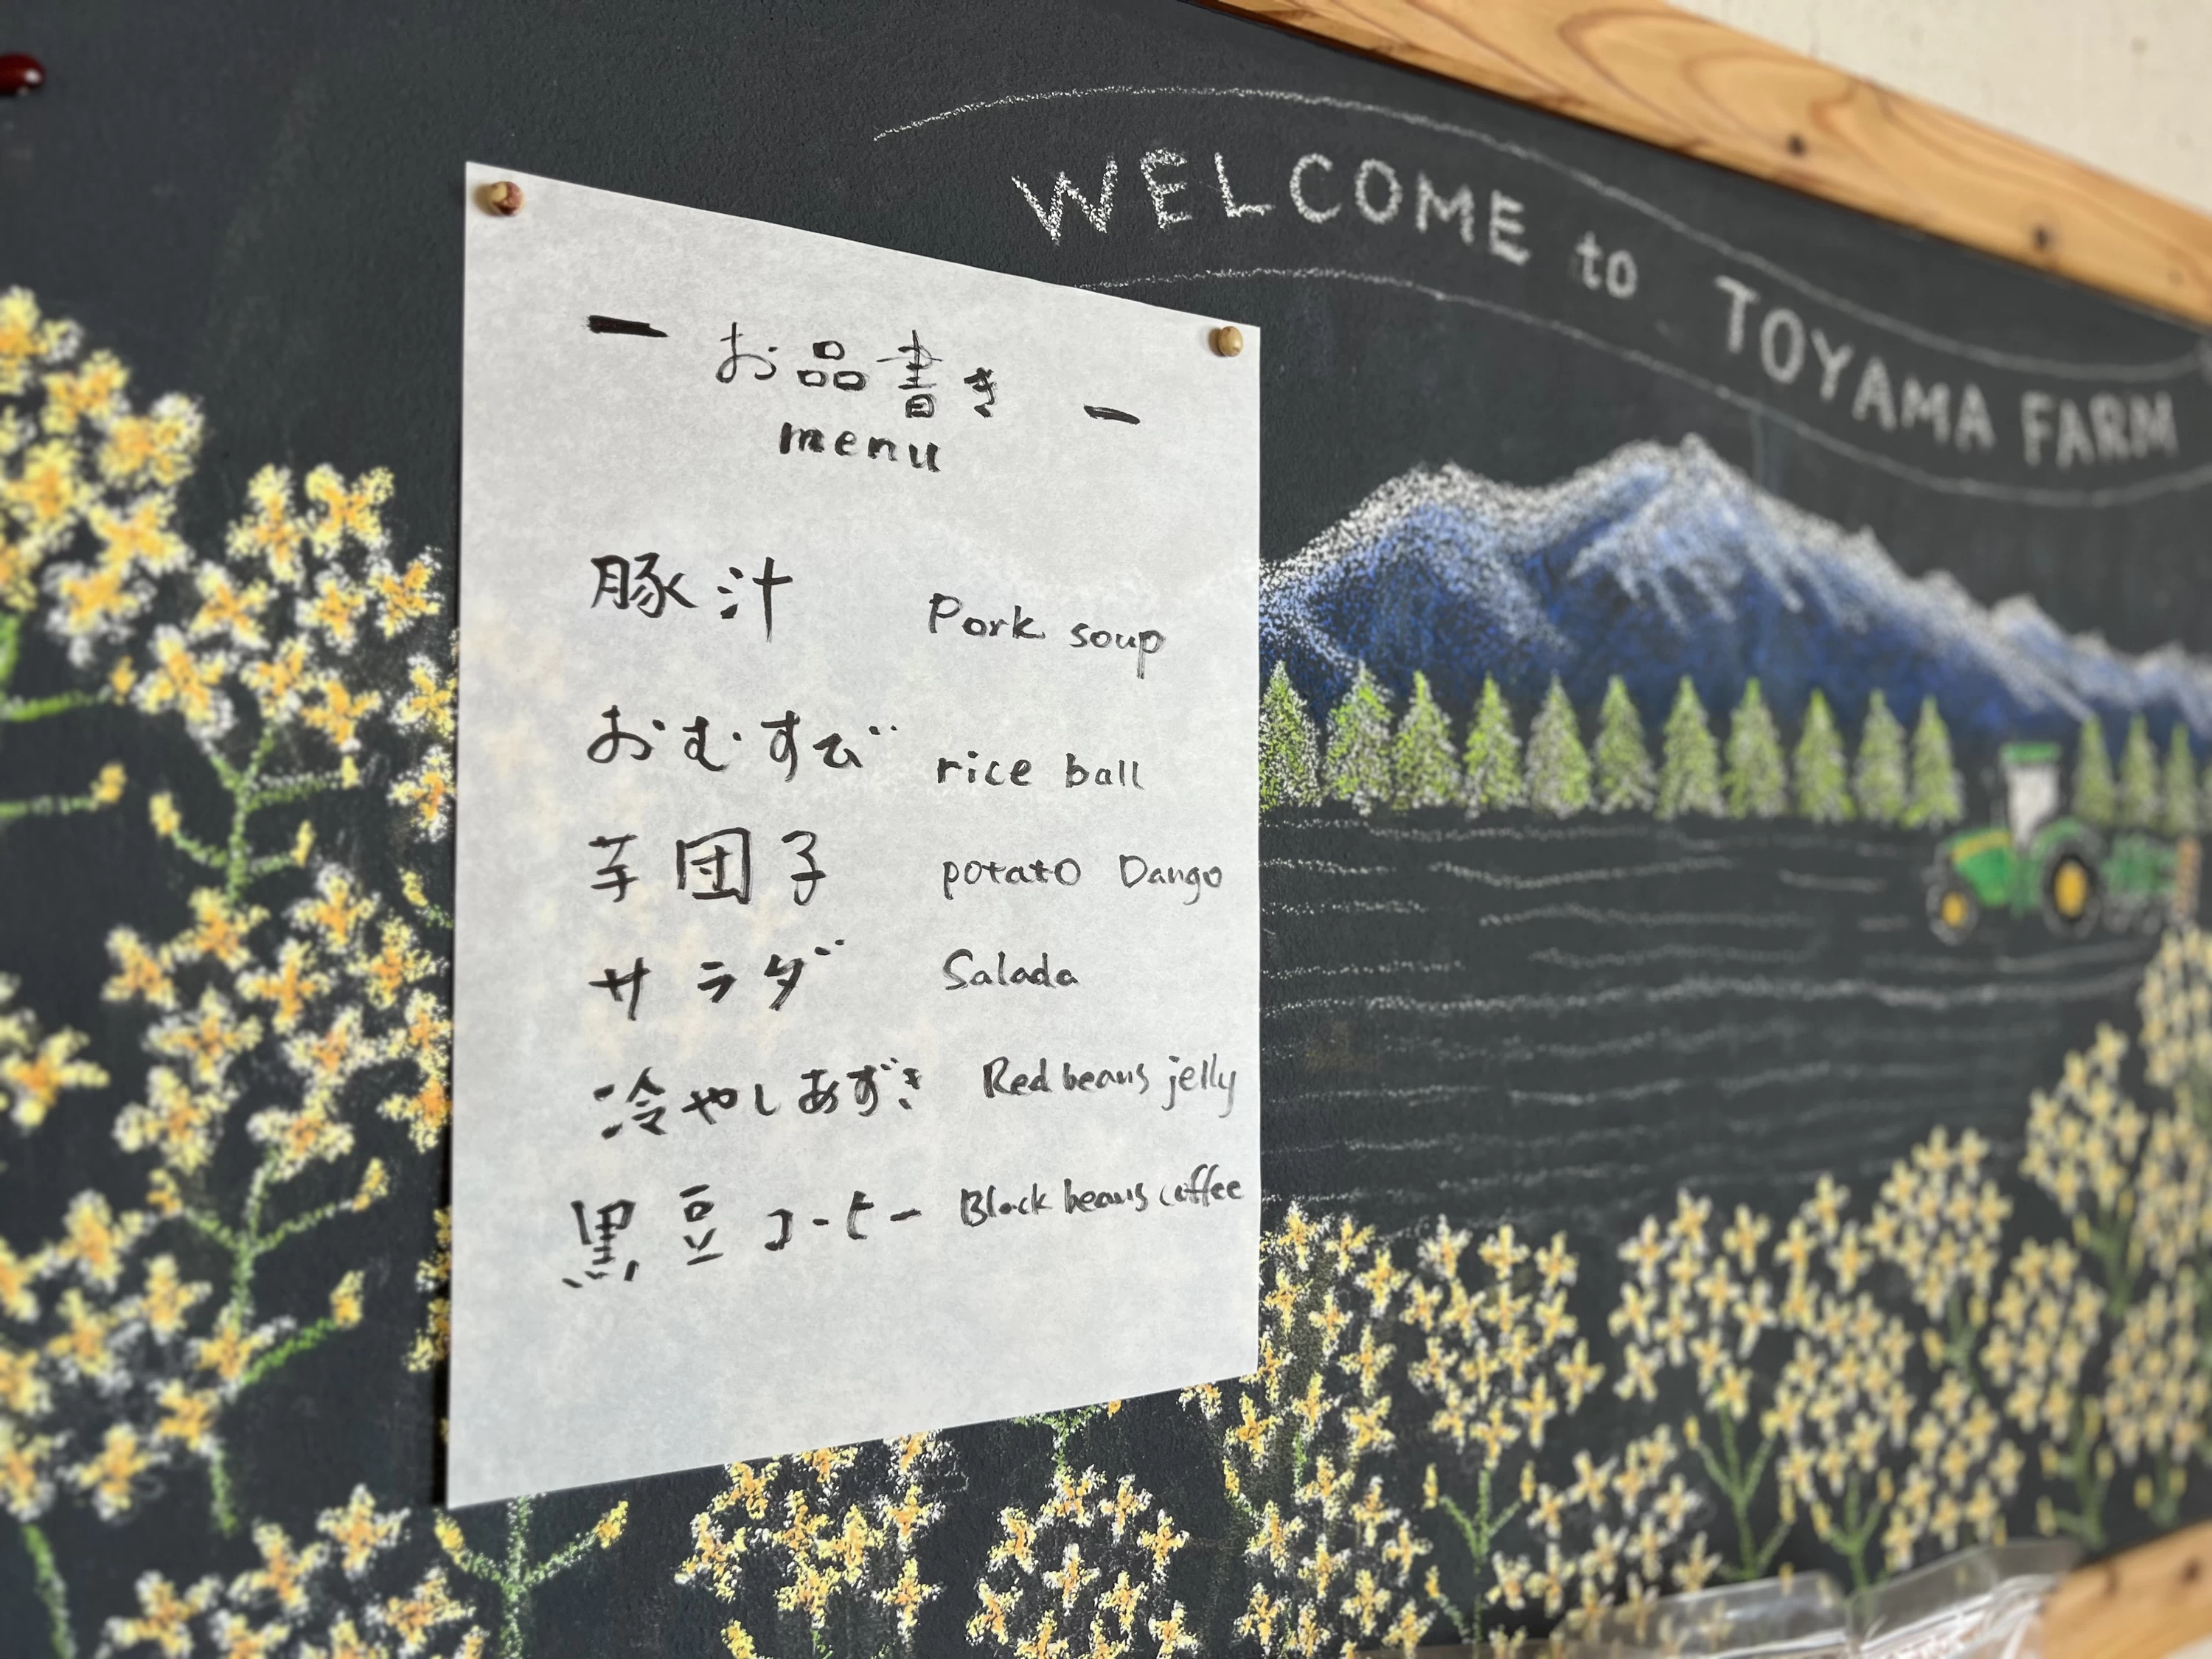 WELCOME to TOYAMA FARM
ー お品書き ー
menu
豚汁 Pork soup
おむすび rice ball
芋団子 potato Dango
サラダ Salada
冷やしあずき Red beans jelly
黒豆コーヒー Black beans coffee